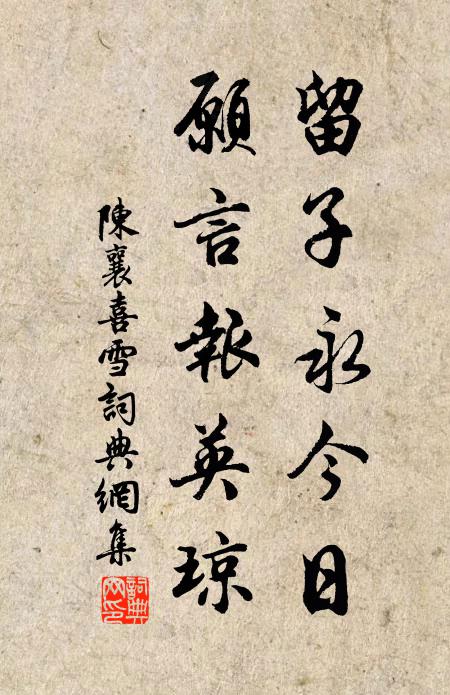 留子永今日
願言報英瓊
陳襄喜雪詞典網集
詞典網印